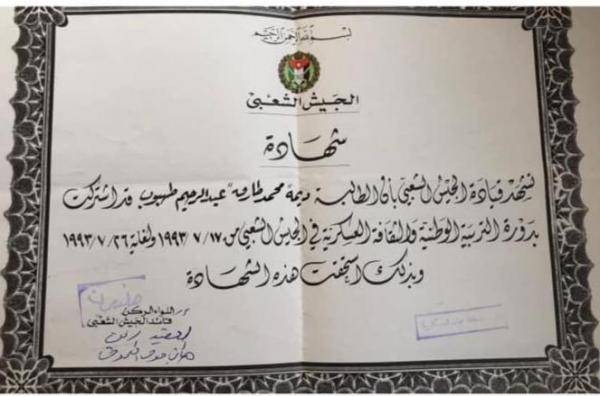 بسم الله الرحمن الرحيم
الجيش الشعبي
شهادة
تشهد قيادة الجيش الشعبي بأن الطالبة ديمة محمد طارق "عبد الرحيم طهبوب" قد اشتركت
بدورة التربية الوطنية والثقافة العسكرية في الجيش الشعبي من ١٩٩٣/٧/١٧ ولغاية ١٩٩٣/٧/٢٦
وبذلك استحقت هذه الشهادة
اللواء الركن
قائد الجيش الشعبي
العقيد الركن